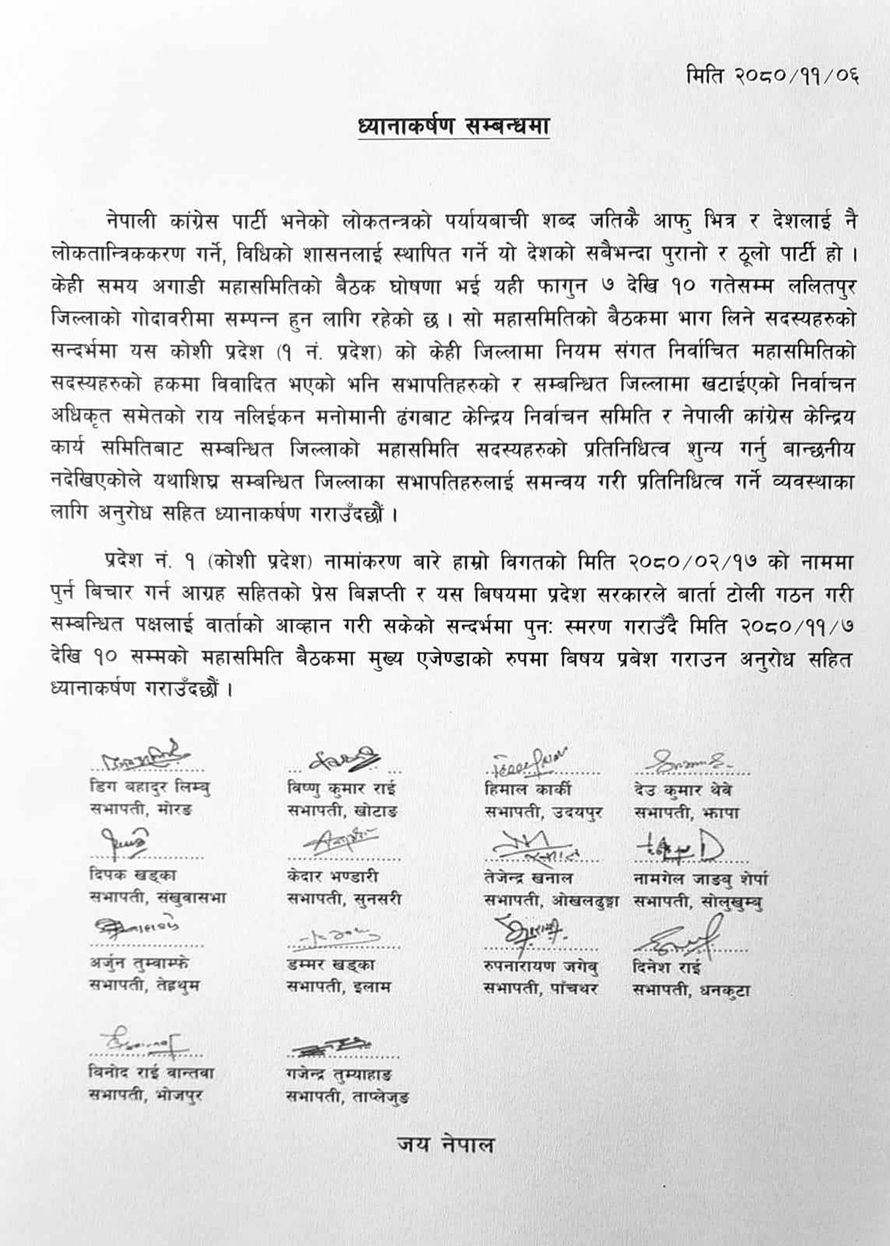 मिति २०८०/११/०६
ध्यानाकर्षण सम्बन्धमा
नेपाली कांग्रेस पार्टी भनेको लोकतन्त्रको पर्यायबाची शब्द जतिकै आफु भित्र र देशलाई नै
लोकतान्त्रिककरण गर्ने, विधिको शासनलाई स्थापित गर्ने यो देशको सबैभन्दा पुरानो र ठूलो पार्टी हो ।
केही समय अगाडी महासमितिको बैठक घोषणा भई यही फागुन ७ देखि १० गतेसम्म ललितपुर
जिल्लाको गोदावरीमा सम्पन्न हुन लागि रहेको छ । सो महासमितिको बैठकमा भाग लिने सदस्यहरुको
सन्दर्भमा यस कोशी प्रदेश (१ नं. प्रदेश) को केही जिल्लामा नियम संगत निर्वाचित महासमितिको
सदस्यहरुको हकमा विवादित भएको भनि सभापतिहरुको र सम्बन्धित जिल्लामा खटाईएको निर्वाचन
अधिकृत समेतको राय नलिईकन मनोमानी ढंगबाट केन्द्रिय निर्वाचन समिति र नेपाली कांग्रेस केन्द्रिय
कार्य समितिबाट सम्बन्धित जिल्लाको महासमिति सदस्यहरुको प्रतिनिधित्व शुन्य गर्नु बान्छनीय
नदेखिएकोले यथाशिघ्र सम्बन्धित जिल्लाका सभापतिहरुलाई समन्वय गरी प्रतिनिधित्व गर्ने व्यवस्थाका
लागि अनुरोध सहित ध्यानाकर्षण गराउँदछौं ।
प्रदेश नं. १ (कोशी प्रदेश) नामांकरण बारे हाम्रो विगतको मिति २०८०/०२/१७ को नाममा
पुर्न बिचार गर्न आग्रह सहितको प्रेस बिज्ञप्ती र यस बिषयमा प्रदेश सरकारले बार्ता टोली गठन गरी
सम्बन्धित पक्षलाई वार्ताको आव्हान गरी सकेको सन्दर्भमा पुनः स्मरण गराउँदै मिति २०८०/११/७
देखि १० सम्मको महासमिति बैठकमा मुख्य एजेण्डाको रुपमा बिषय प्रबेश गराउन अनुरोध सहित
ध्यानाकर्षण गराउँदछौं ।
डिग बहादुर लिम्बु विष्णु कुमार राई हिमाल कार्की देउ कुमार थेबे
सभापती, मोरङ सभापती, खोटाङ सभापती, उदयपुर सभापती, झापा
दिपक खड्का केदार भण्डारी तेजेन्द्र खनाल नामगेल जाङबु शेर्पा
सभापती, संखुवासभा सभापती, सुनसरी सभापती, ओखलढुङ्गा सभापती, सोलुखुम्बु
अर्जुन तुम्बाम्फे डम्मर खड्का रुपनारायण जगेबु दिनेश राई
सभापती, तेह्रथुम सभापती, इलाम सभापती, पाँचथर सभापती, धनकुटा
विनोद राई वान्तवा गजेन्द्र तुम्याहाङ
सभापती, भोजपुर सभापती, ताप्लेजुङ
जय नेपाल